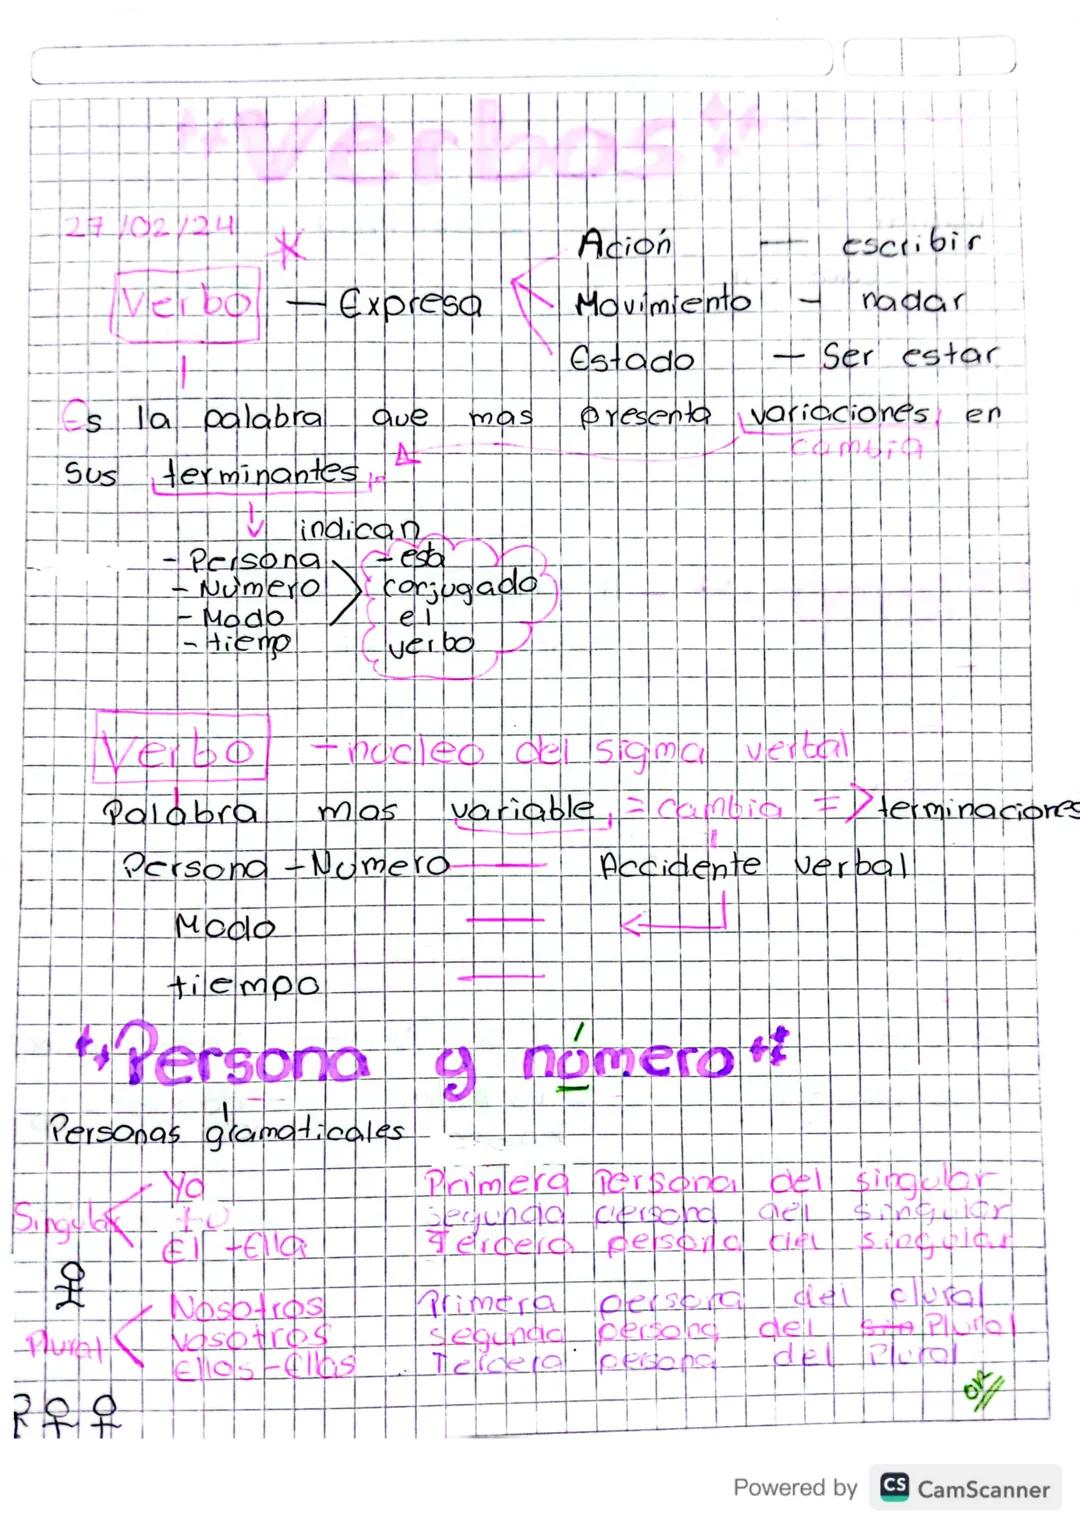 "Verbos"
27/02/24
Acción — escribir
Verbo — Expresa
Movimiento — nadar
Estado — Ser estar
Es la palabra que mas presenta variaciones en
cambia
sus terminantes
indican
- Persona
- Número
- Modo
- tiempo
- esta
conjugado
el
verbo
Verbo - nucleo del sigma verbal
Palabra mas variable = cambia => terminaciones
Persona - Numero Accidente verbal
Modo
tiempo
Persona y número
Personas gramaticales
Singular
Yo Primera Persona del singular
Tu segunda persona del singular
El - Ella Tercera persona del singular
Plural
Nosotros Primera persona del plural
vosotros segunda persona del Plural
Ellos - Ellas Tercera persona del Plural
Powered by CS CamScanner